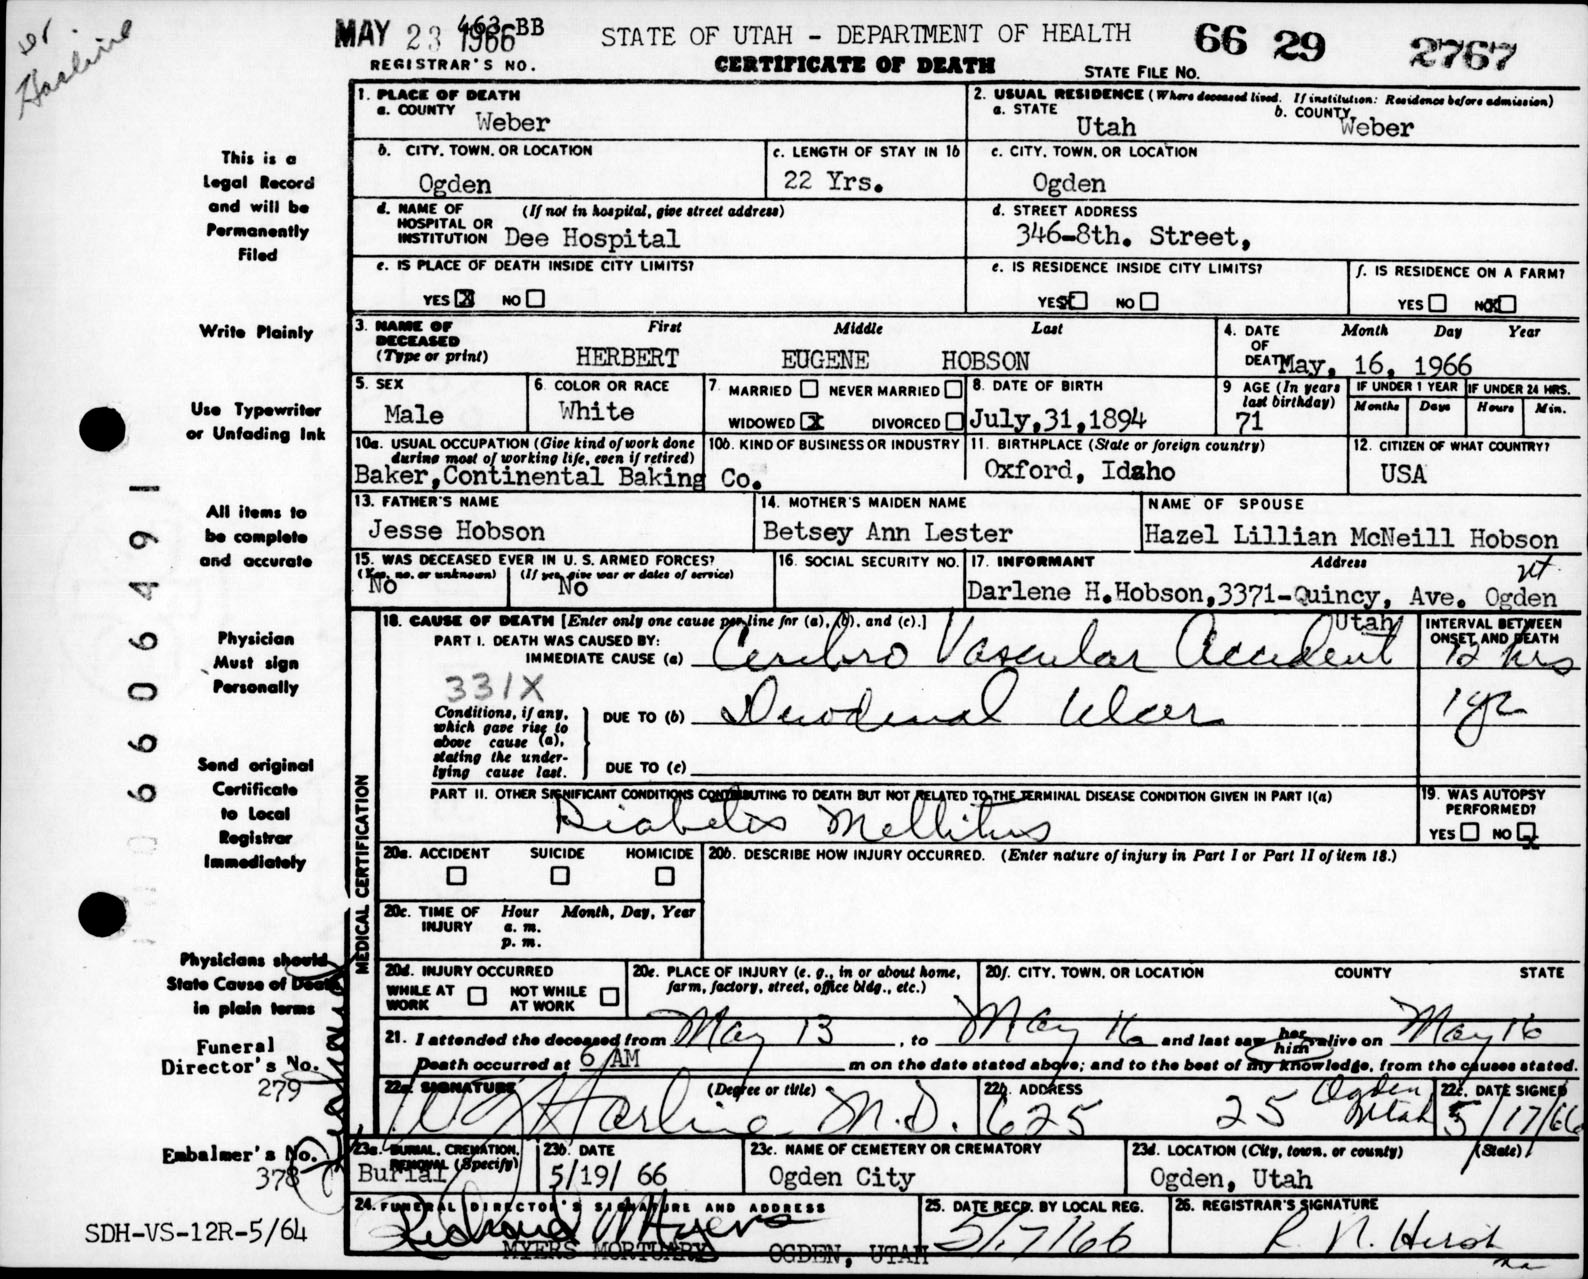 Dr Harline
MAY 23 1966 463-BB STATE OF UTAH - DEPARTMENT OF HEALTH 66 29 2767
REGISTRAR'S NO. CERTIFICATE OF DEATH STATE FILE NO.
1. PLACE OF DEATH 2. USUAL RESIDENCE (Where deceased lived. If institution: Residence before admission)
a. COUNTY Weber a. STATE Utah b. COUNTY Weber
b. CITY, TOWN, OR LOCATION c. LENGTH OF STAY IN 1b c. CITY, TOWN, OR LOCATION
Ogden 22 Yrs. Ogden
d. NAME OF HOSPITAL OR INSTITUTION (If not in hospital, give street address) d. STREET ADDRESS
Dee Hospital 346-8th. Street,
e. IS PLACE OF DEATH INSIDE CITY LIMITS? e. IS RESIDENCE INSIDE CITY LIMITS? f. IS RESIDENCE ON A FARM?
YES X NO YES X NO YES NO X
3. NAME OF DECEASED (Type or print) First Middle Last 4. DATE OF DEATH Month Day Year
HERBERT EUGENE HOBSON May, 16, 1966
5. SEX 6. COLOR OR RACE 7. MARRIED NEVER MARRIED 8. DATE OF BIRTH 9 AGE (In years last birthday) IF UNDER 1 YEAR IF UNDER 24 HRS.
Months Days Hours Min.
Male White WIDOWED X DIVORCED July,31,1894 71
10a. USUAL OCCUPATION (Give kind of work done during most of working life, even if retired) 10b. KIND OF BUSINESS OR INDUSTRY 11. BIRTHPLACE (State or foreign country) 12. CITIZEN OF WHAT COUNTRY?
Baker,Continental Baking Co. Oxford, Idaho USA
13. FATHER'S NAME 14. MOTHER'S MAIDEN NAME NAME OF SPOUSE
Jesse Hobson Betsey Ann Lester Hazel Lillian McNeill Hobson
15. WAS DECEASED EVER IN U. S. ARMED FORCES? 16. SOCIAL SECURITY NO. 17. INFORMANT Address
(Yes, no, or unknown) (If yes, give war or dates of service)
No No Darlene H.Hobson,3371-Quincy, Ave. Ogden Utah
18. CAUSE OF DEATH [Enter only one cause per line for (a), (b), and (c).] INTERVAL BETWEEN ONSET AND DEATH
PART I. DEATH WAS CAUSED BY:
IMMEDIATE CAUSE (a) Cerebro Vascular Accident 12 hrs
331X
Conditions, if any, which gave rise to above cause (a), stating the underlying cause last.
DUE TO (b) Duodenal Ulcer 1 yr
DUE TO (c)
PART II. OTHER SIGNIFICANT CONDITIONS CONTRIBUTING TO DEATH BUT NOT RELATED TO THE TERMINAL DISEASE CONDITION GIVEN IN PART I(a) 19. WAS AUTOPSY PERFORMED?
Diabetes Mellitus YES NO X
20a. ACCIDENT SUICIDE HOMICIDE 20b. DESCRIBE HOW INJURY OCCURRED. (Enter nature of injury in Part I or Part II of item 18.)
20c. TIME OF INJURY Hour Month, Day, Year
a. m.
p. m.
20d. INJURY OCCURRED 20e. PLACE OF INJURY (e. g., in or about home, farm, factory, street, office bldg., etc.) 20f. CITY, TOWN, OR LOCATION COUNTY STATE
WHILE AT WORK NOT WHILE AT WORK
21. I attended the deceased from May 13, to May 16 and last saw her him alive on May 16
Death occurred at 6 AM m on the date stated above; and to the best of my knowledge, from the causes stated.
22a. SIGNATURE (Degree or title) 22b. ADDRESS 22c. DATE SIGNED
Harline M.D. 625 25 Ogden Utah 5/17/66
23a. BURIAL, CREMATION, REMOVAL (Specify) 23b. DATE 23c. NAME OF CEMETERY OR CREMATORY 23d. LOCATION (City, town, or county) (State)
Burial 5/19/ 66 Ogden City Ogden, Utah
24. FUNERAL DIRECTOR'S SIGNATURE AND ADDRESS 25. DATE RECD. BY LOCAL REG. 26. REGISTRAR'S SIGNATURE
Richard W Myers 5/17/66
MYERS MORTUARY OGDEN, UTAH
MEDICAL CERTIFICATION
This is a
Legal Record
and will be
Permanently
Filed
Write Plainly
Use Typewriter
or Unfading Ink
All items to
be complete
and accurate
Physician
Must sign
Personally
Send original
Certificate
to Local
Registrar
Immediately
Physicians should
State Cause of Death
in plain terms
Funeral
Director's No.
279
Embalmer's No.
378
SDH-VS-12R-5/64
6606491